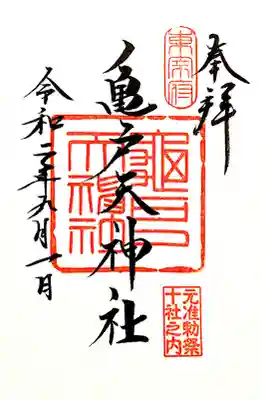 奉拝
東宰府
亀戸天神社
亀戸天神社
元准勅祭
十社之内
令和二年九月一日